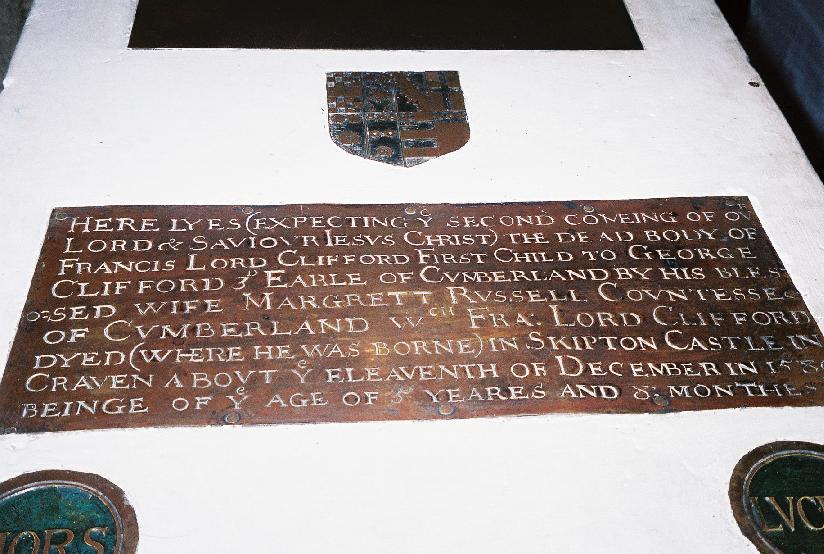 HERE LYES (EXPECTING Yᵉ SECOND COMEING OF OV
LORD & SAVIOVR IESVS CHRIST) THE DEAD BODY OF
FRANCIS LORD CLIFFORD FIRST CHILD TO GEORGE
CLIFFORD 3ᴰ EARLE OF CVMBERLAND BY HIS BLES
SED WIFE MARGRETT RVSSELL COVNTESSE
OF CVMBERLAND Wᶜᴴ FRA: LORD CLIFFORD
DYED (WHERE HE WAS BORNE) IN SKIPTON CASTLE IN
CRAVEN ABOVT Yᵉ ELEAVENTH OF DECEMBER IN
BEINGE OF Yᵉ AGE OF 5 YEARES AND 8 MONTHES
MORS